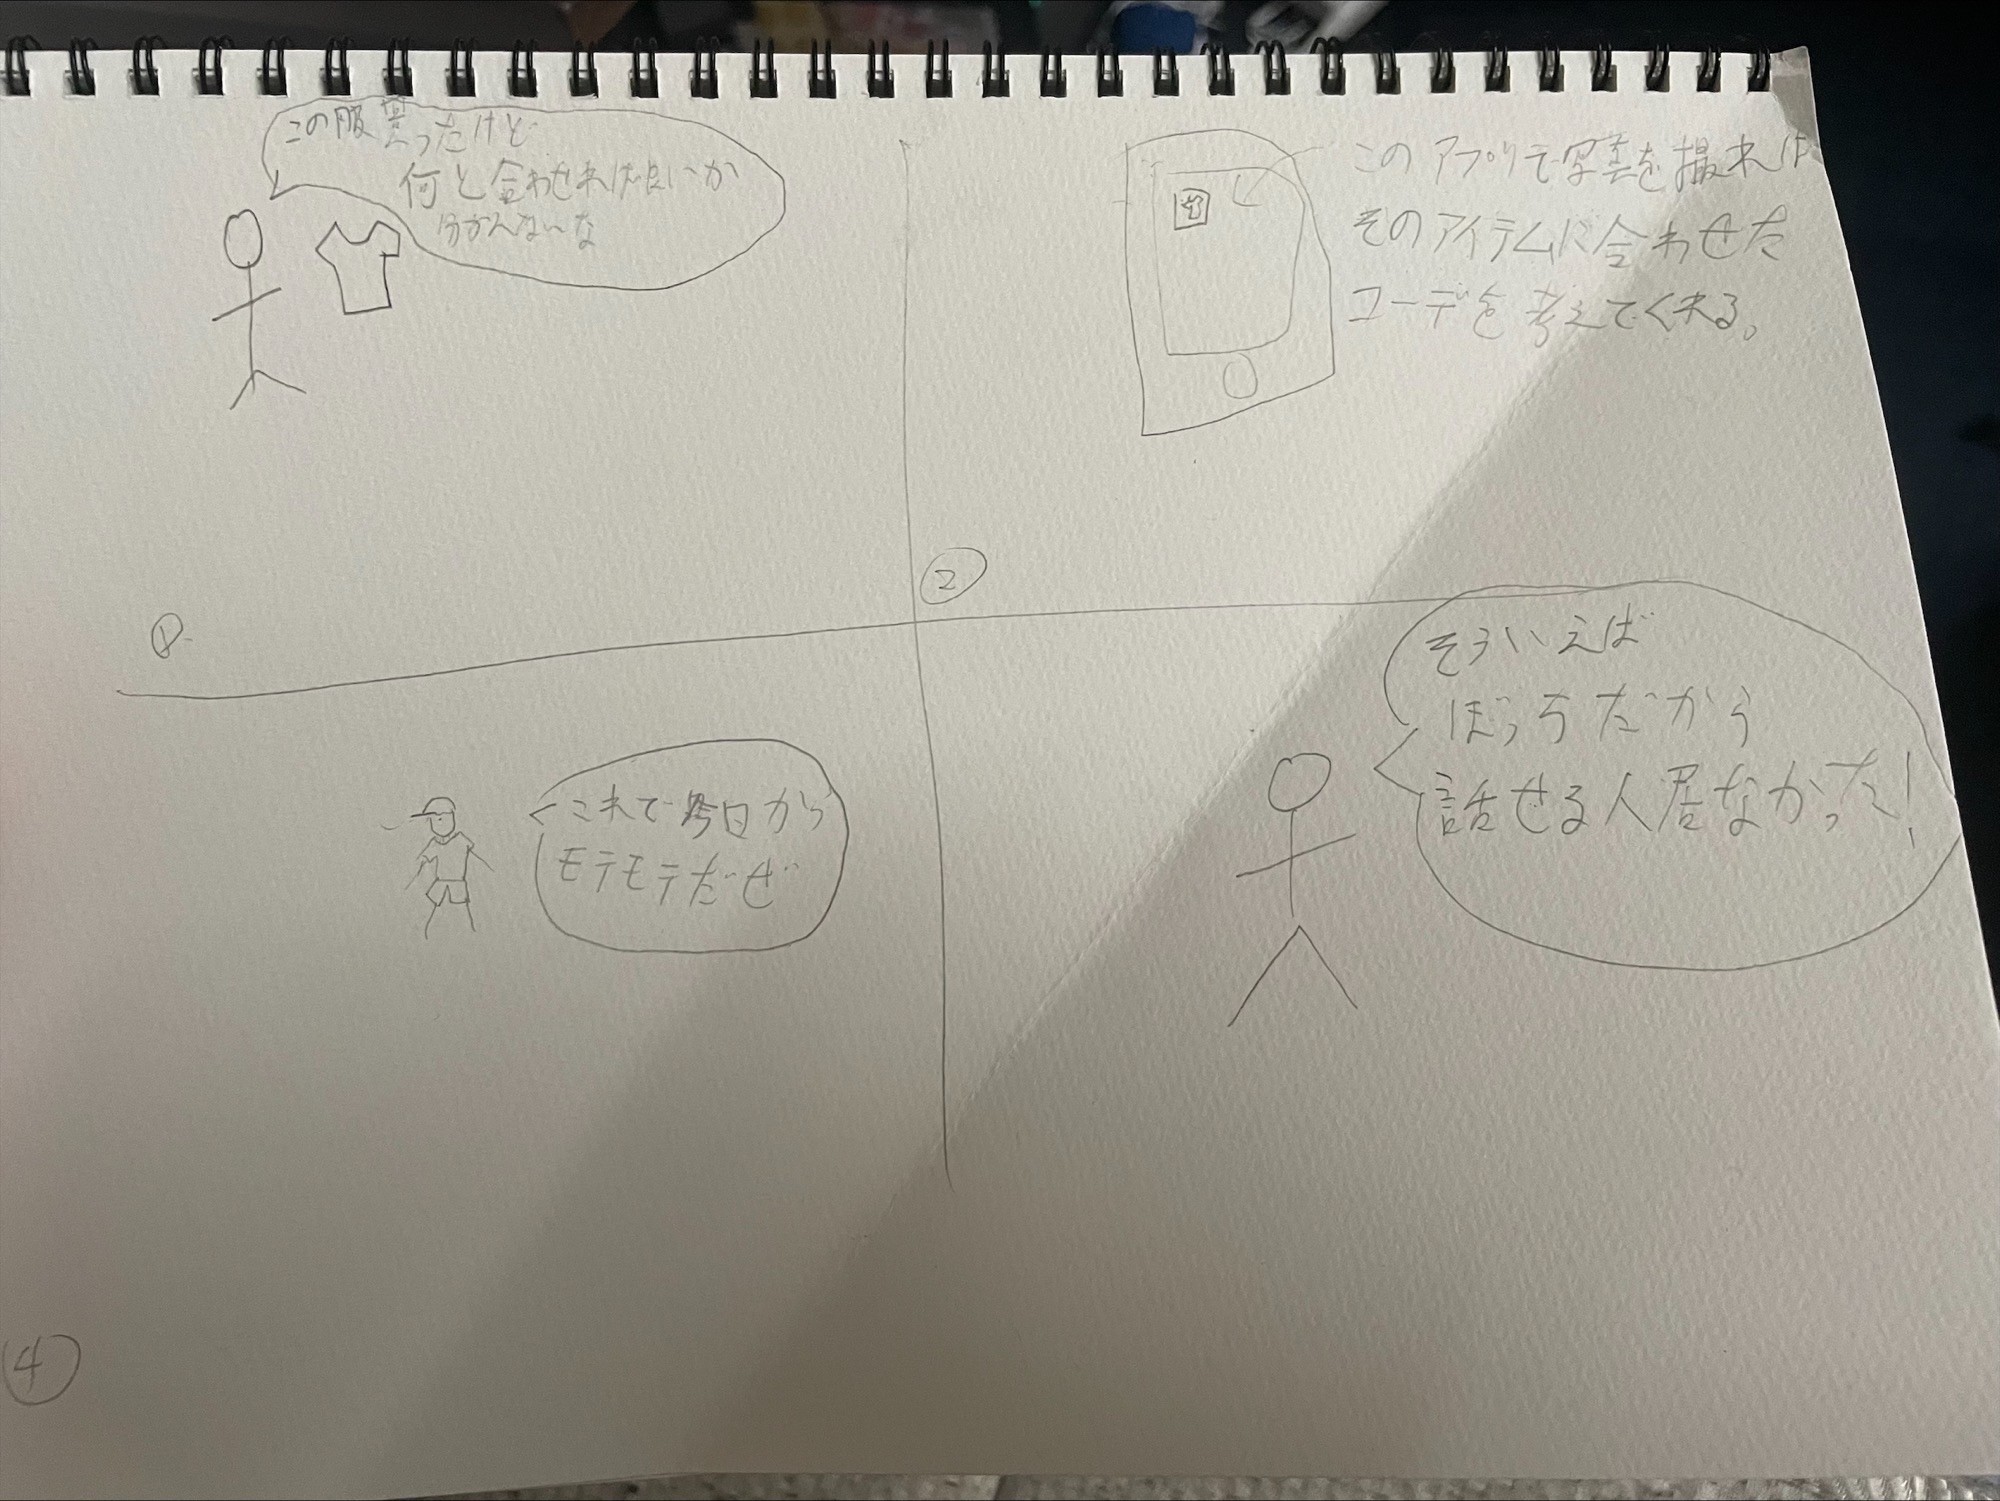 この服買ったけど
何と合わせれば良いか
分かんないな
①
このアプリで写真を撮れば
そのアイテムに合わせた
コーデを考えてくれる。
②
これで今日から
モテモテだぜ
そういえば
ぼっちだから
話せる人居なかった!
④